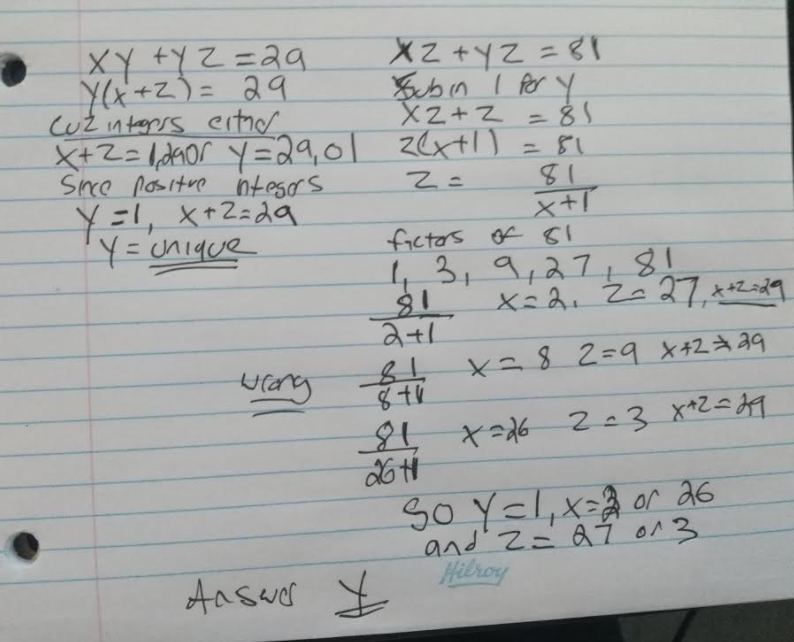 XY + YZ = 29
Y(X+Z) = 29
Cuz integers either
X+Z=1,29 or Y=29,01
Since positive integers
Y=1, X+Z=29
Y = unique
XZ + YZ = 81
Sub in 1 for Y
XZ+Z = 81
Z(X+1) = 81
Z = 81/X+1
factors of 81
1, 3, 9, 27, 81
81/2+1 X=2, Z=27, X+Z=29
wrong 81/8+1 X=8 Z=9 X+Z≠29
81/26+1 X=26 Z=3 X+Z=29
So Y=1, X=2 or 26
and Z= 27 or 3
Hilroy
Answer Y